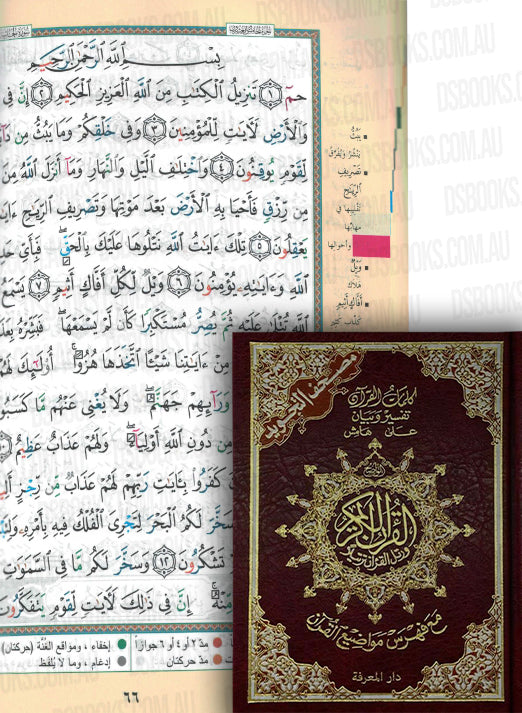 بِسْمِ اللَّهِ الرَّحْمَٰنِ الرَّحِيمِ
حمٓ ١ تَنزِيلُ الْكِتَٰبِ مِنَ اللَّهِ الْعَزِيزِ الْحَكِيمِ ٢ إِنَّ فِي
وَالْأَرْضِ لَآيَٰتٍ لِّلْمُؤْمِنِينَ ٣ وَفِي خَلْقِكُمْ وَمَا يَبُثُّ مِن
لِّقَوْمٍ يُوقِنُونَ ٤ وَاخْتِلَٰفِ الَّيْلِ وَالنَّهَارِ وَمَآ أَنزَلَ اللَّهُ مِنَ
مِن رِّزْقٍ فَأَحْيَا بِهِ الْأَرْضَ بَعْدَ مَوْتِهَا وَتَصْرِيفِ الرِّيَٰحِ
يَعْقِلُونَ ٥ تِلْكَ ءَايَٰتُ اللَّهِ نَتْلُوهَا عَلَيْكَ بِالْحَقِّ فَبِأَيِّ
اللَّهِ وَءَايَٰتِهِ يُؤْمِنُونَ ٦ وَيْلٌ لِّكُلِّ أَفَّاكٍ أَثِيمٍ ٧ يَسْمَعُ
اللَّهِ تُتْلَىٰ عَلَيْهِ ثُمَّ يُصِرُّ مُسْتَكْبِرًا كَأَن لَّمْ يَسْمَعْهَا فَبَشِّرْهُ
مِنْ ءَايَٰتِنَا شَيْـًٔا اتَّخَذَهَا هُزُوًا أُو۟لَٰٓئِكَ لَهُمْ
وَرَآئِهِمْ جَهَنَّمُ وَلَا يُغْنِي عَنْهُم مَّا كَسَبُوا
مِن دُونِ اللَّهِ أَوْلِيَآءَ وَلَهُمْ عَذَابٌ عَظِيمٌ ١٠
كَفَرُوا بِـَٔايَٰتِ رَبِّهِمْ لَهُمْ عَذَابٌ مِّن رِّجْزٍ أَلِيمٌ
سَخَّرَ لَكُمُ الْبَحْرَ لِتَجْرِيَ الْفُلْكُ فِيهِ بِأَمْرِهِ
تَشْكُرُونَ ١٢ وَسَخَّرَ لَكُم مَّا فِي السَّمَٰوَٰتِ
مِّنْهُ إِنَّ فِي ذَٰلِكَ لَآيَٰتٍ لِّقَوْمٍ يَتَفَكَّرُونَ
يَبُثُّ
يَنْشُرُ وَيُفَرِّقُ
تَصْرِيفِ
الرِّيَٰحِ
تقليبها في
مهابّها
وأحوالها
وَيْلٌ
هلاك
أَفَّاكٍ أَثِيمٍ
كذّاب كثير
مدّ ٢ أو ٤ أو ٦ جوازاً
إخفاء، ومواقع الغُنَّة (حركتان)
مدّ حركتان
إدغام، وما لا يُلفَظ
٦٦
مصحف التجويد
كلمات القرآن
تفسير وبيان
على هامش
القرآن الكريم
ورتل القرآن ترتيلا
مع فهرس مواضيع القرآن
دار المعرفة
DSBOOKS.COM.AU